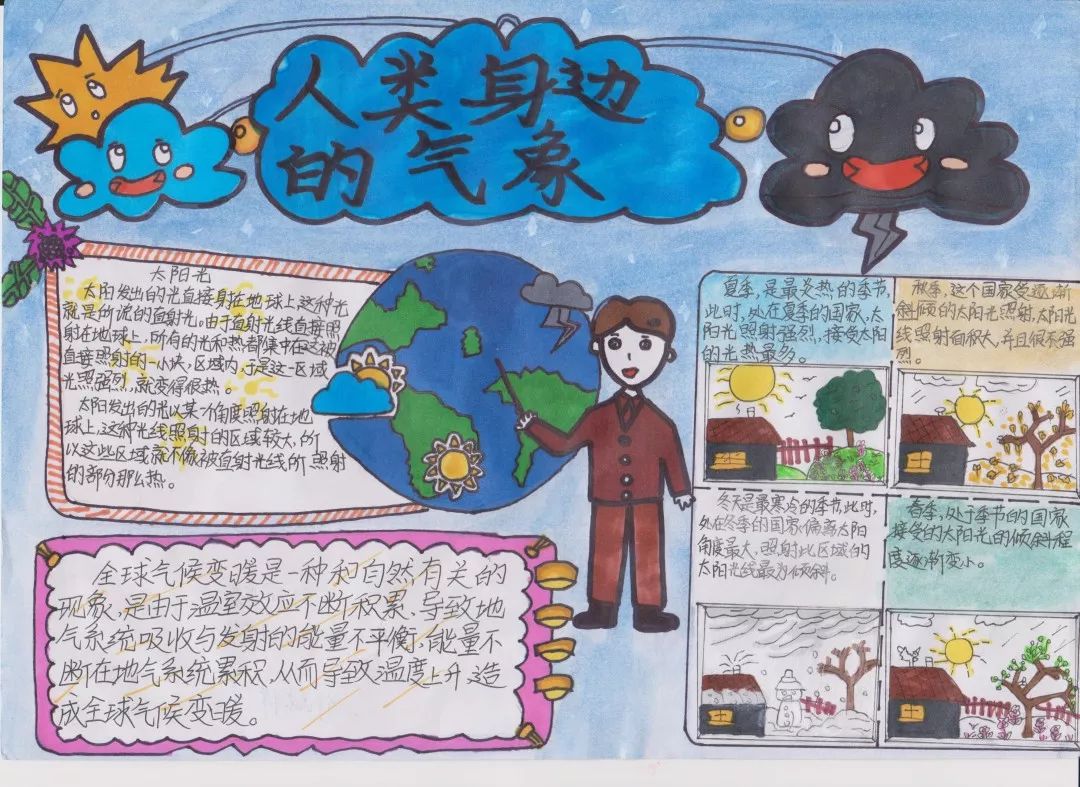 人类身边
的气象
太阳光
太阳发出的光直接射在地球上,这种光
就是所说的直射光,由于直射光线直接照
射在地球上,所有的光和热都集中在这被
直接照射的一小块区域内,于是这一区域
光照强烈,就变得很热。
太阳发出的光以某个角度照射在地
球上,这种光线照射的区域较大,所
以这些区域就不像被直射光线所照射
的部分那么热。
全球气候变暖是一种和自然有关的
现象,是由于温室效应不断积累,导致地
气系统吸收与发射的能量不平衡,能量不
断在地气系统累积,从而导致温度上升,造
成全球气候变暖。
夏季,是最炎热的季节,
此时,处在夏季的国家,太
阳光照射强烈,接受太阳
的光热最多。
秋季,这个国家受逐渐
倾斜的太阳光照射,太阳光
线照射面积大,并且很不强
烈。
冬天是最寒冷的季节,此时,
处在冬季的国家偏离太阳
角度最大,照射此区域的
太阳光线最为倾斜。
春季,处于季节的国家
接受的太阳光的倾斜程
度逐渐变小。